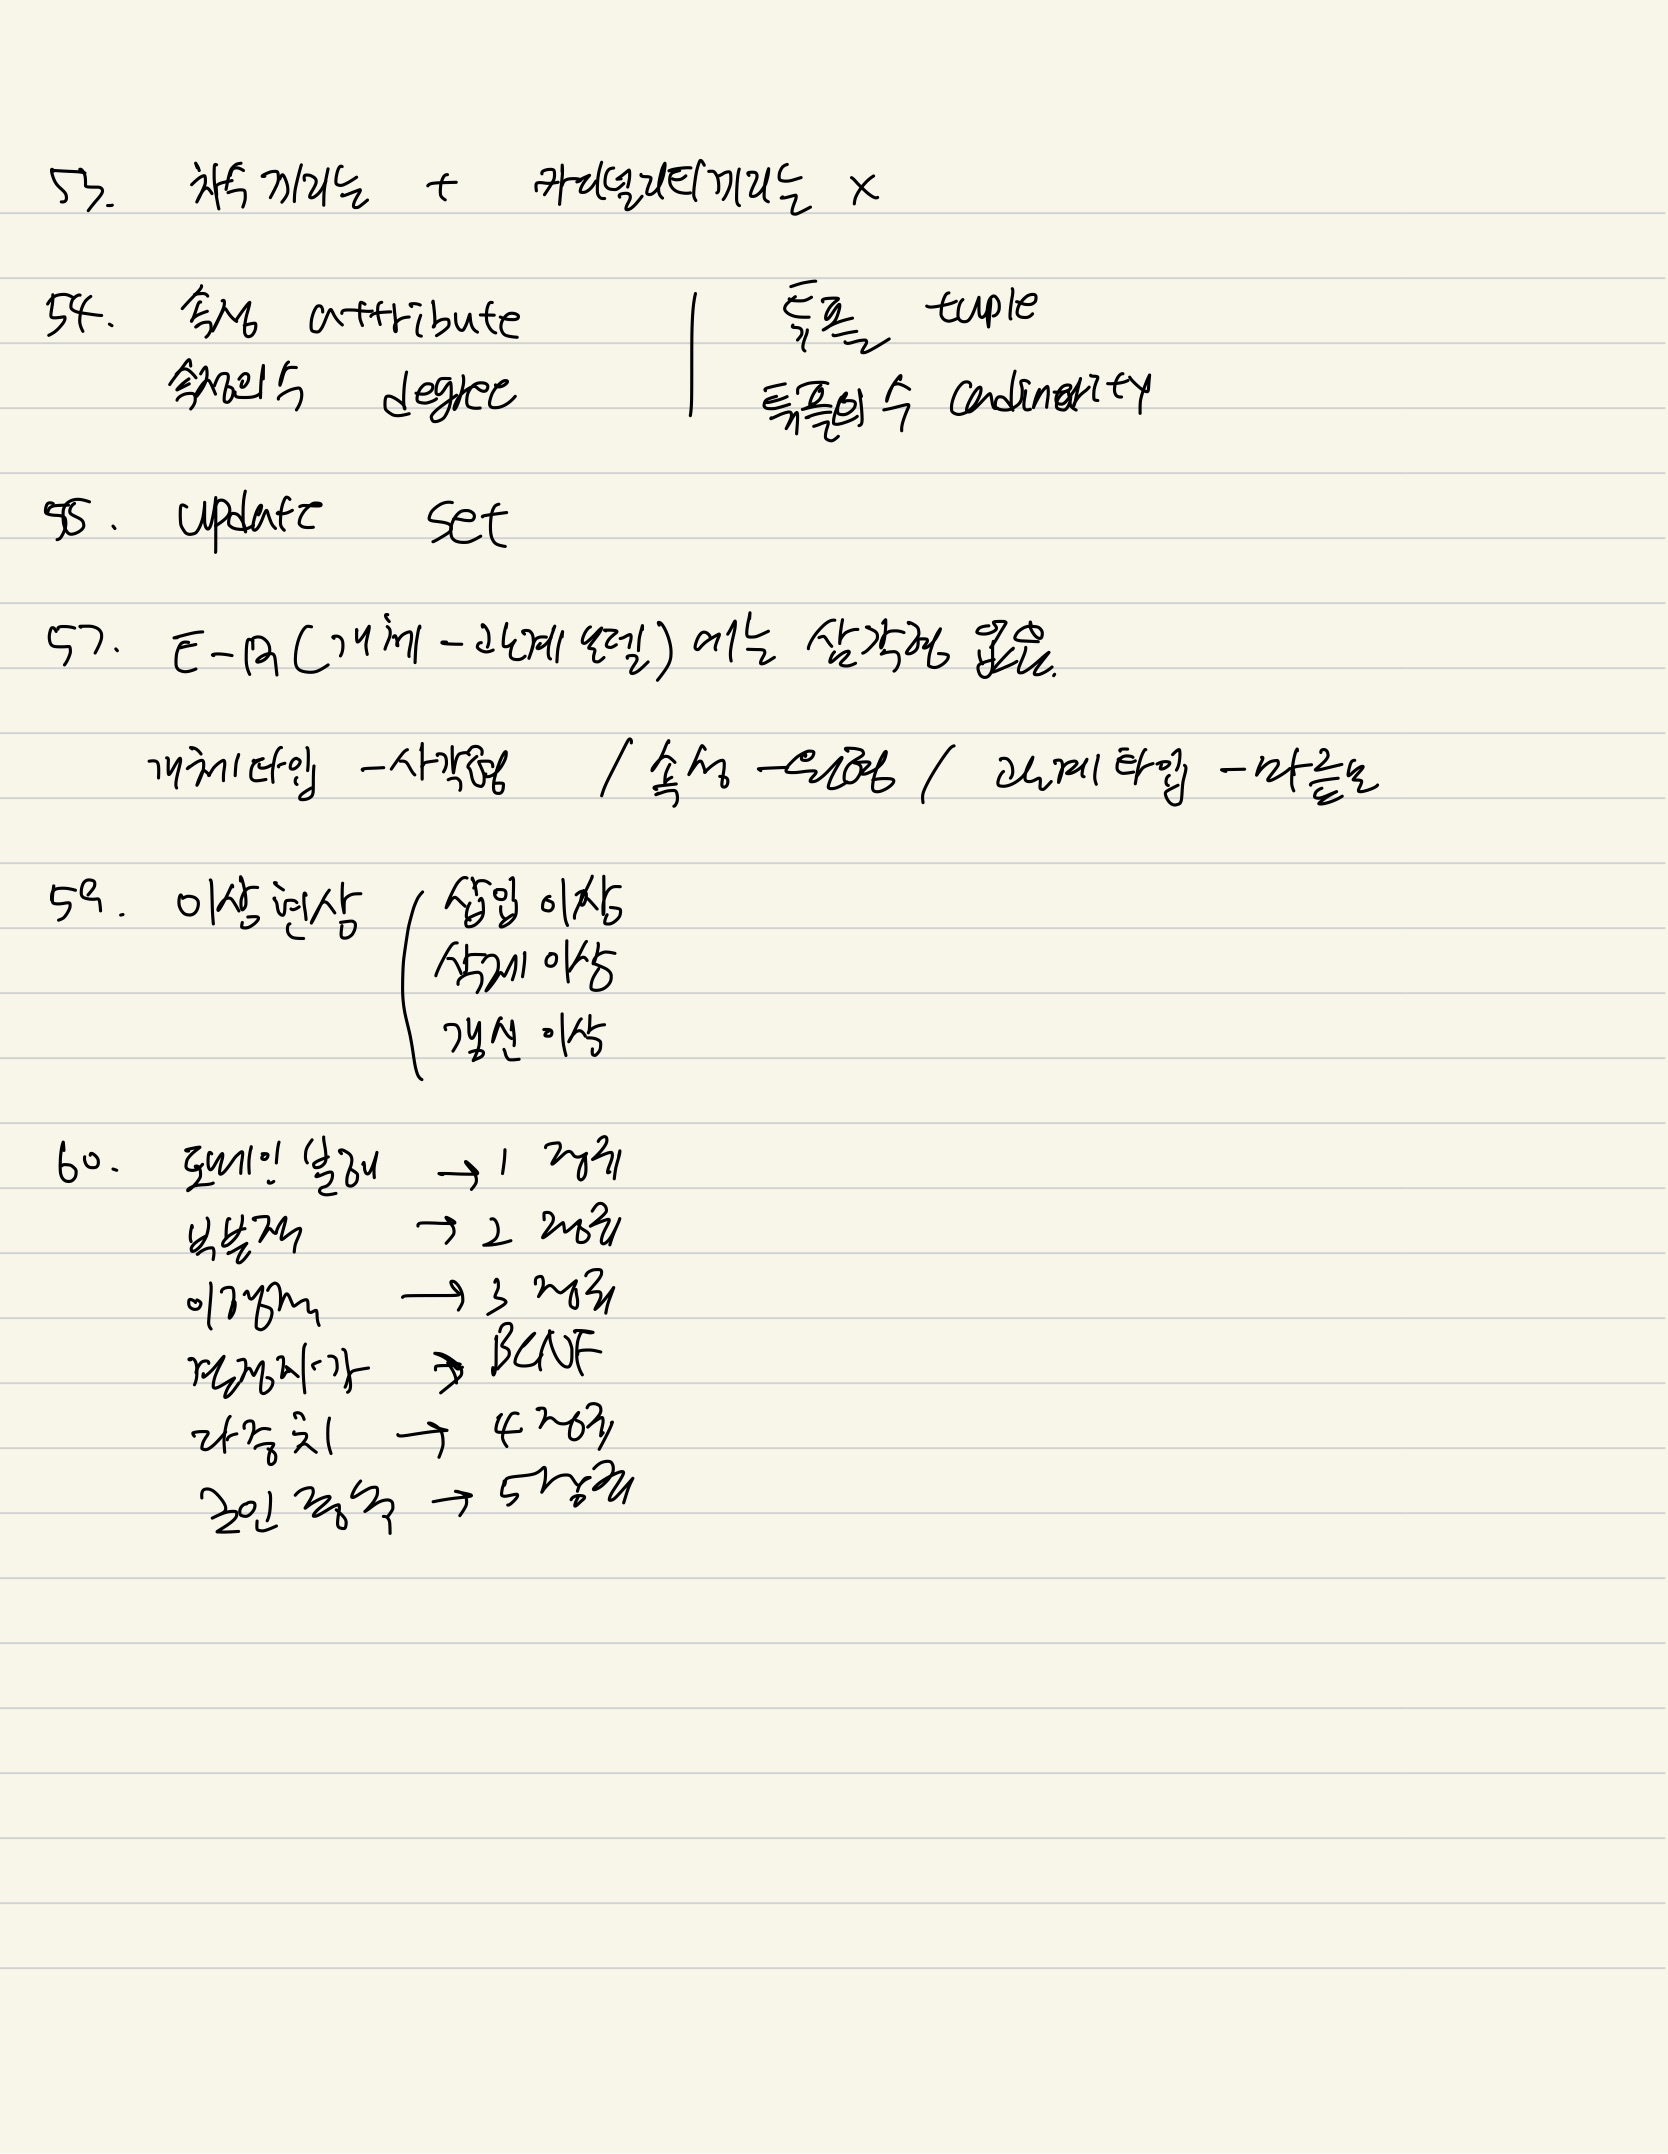 53. 차수끼리는 + 카디널리티끼리는 x
54. 속성 attribute | 튜플 tuple
속성의 수 degree | 튜플의 수 cadinarity
55. update set
57. E-R(개체-관계 모델)에는 삼각형 없음.
개체타입 -사각형 / 속성 -원형 / 관계타입 -마름모
59. 이상현상 ( 삽입 이상
삭제 이상
갱신 이상
60. 도메인 분해 → 1 정규
부분적 → 2 정규
이행적 → 3 정규
결정자가 → BCNF
다중치 → 4 정규
조인 종속 → 5정규